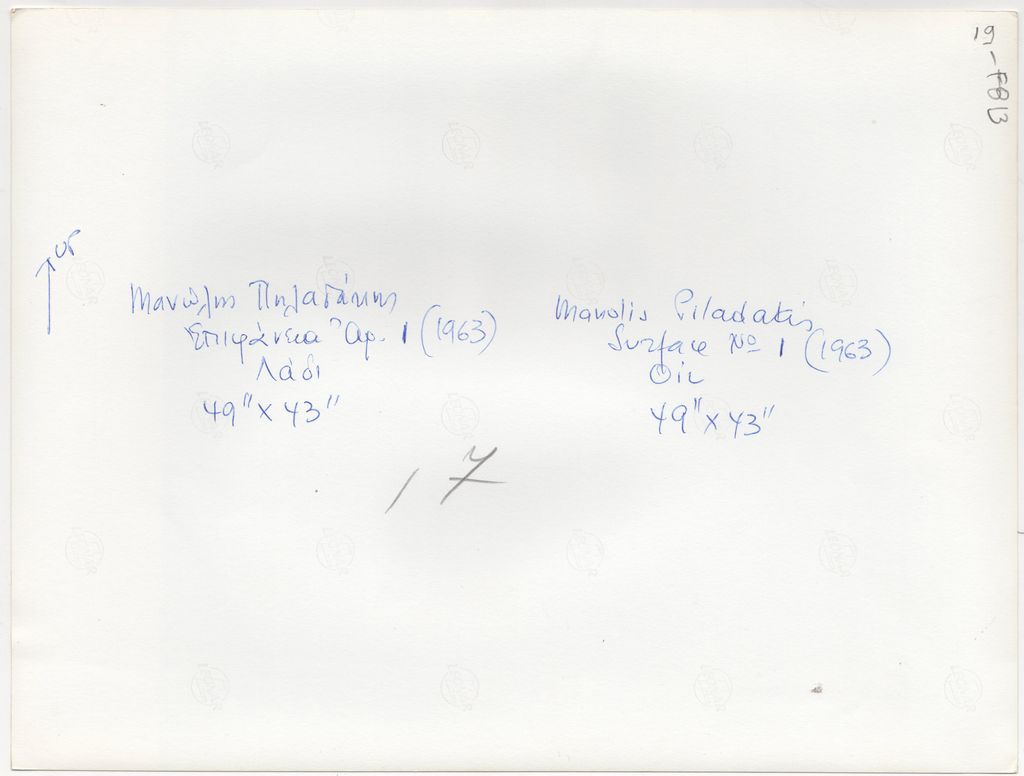 19-FBB
up
Μανώλης Πηλαδάκης
Επιφάνεια Ἀρ. 1 (1963)
Λάδι
49" x 43"
Manolis Piladakis
Surface No 1 (1963)
Oil
49" x 43"
17